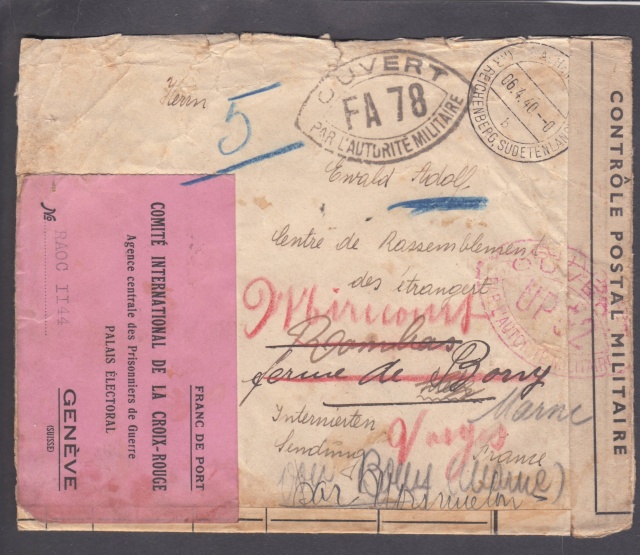 Herrn
5
OUVERT
FA 78
PAR L'AUTORITÉ MILITAIRE
06.4.40
b
REICHENBERG, SUDETENLAND
CONTRÔLE POSTAL MILITAIRE
Ewald Adolf
Centre de Rassemblement
des étrangers
Mirecourt
Rombas
ferme de Bony
Marne
Internierten
Sendung
Vosges
France
Bony (Marne)
FRANC DE PORT
COMITÉ INTERNATIONAL DE LA CROIX-ROUGE
Agence centrale des Prisonniers de Guerre
PALAIS ÉLECTORAL
GENÈVE
(SUISSE)
№ RAOC II 44